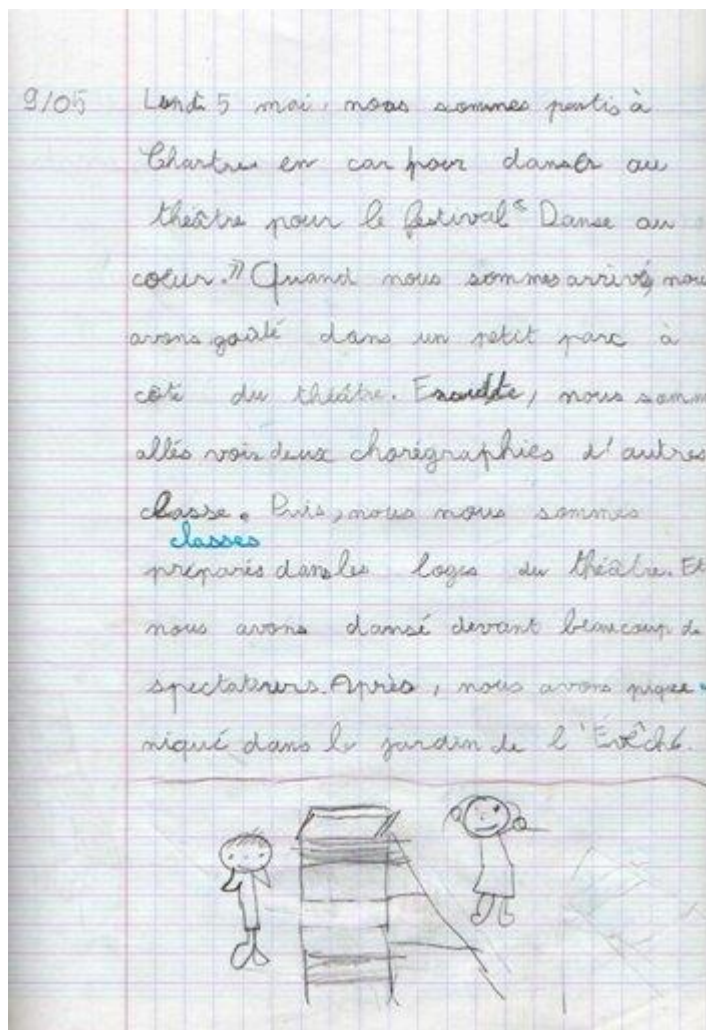 9/05 Lundi 5 mai, nous sommes partis à
Chartres en car pour danser au
théâtre pour le festival "Danse au
cœur." Quand nous sommes arrivé, nou
avons goûté dans un petit parc à
côté du théâtre. Ensuite, nous somm
allés voir deux chorégraphies d'autres
classe. Puis, nous nous sommes
classes
préparés dans les loges du théâtre. Et
nous avons dansé devant beaucoup de
spectateurs. Après, nous avons pique-
niqué dans le jardin de l'Évêché.